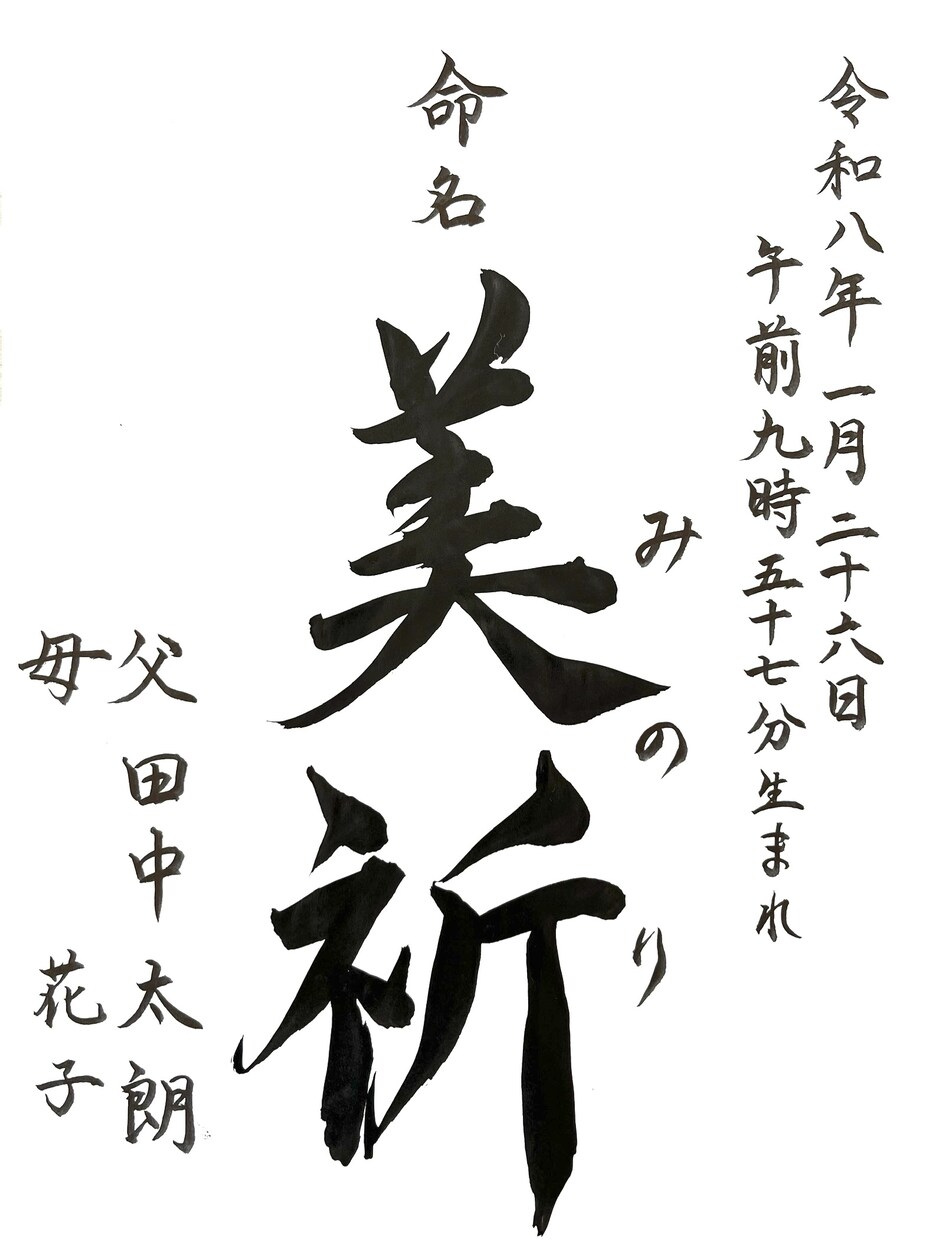 令和八年 一月二十六日
午前九時五十七分生まれ
みのり
命名
美祈
父 田中 太朗
母 花子